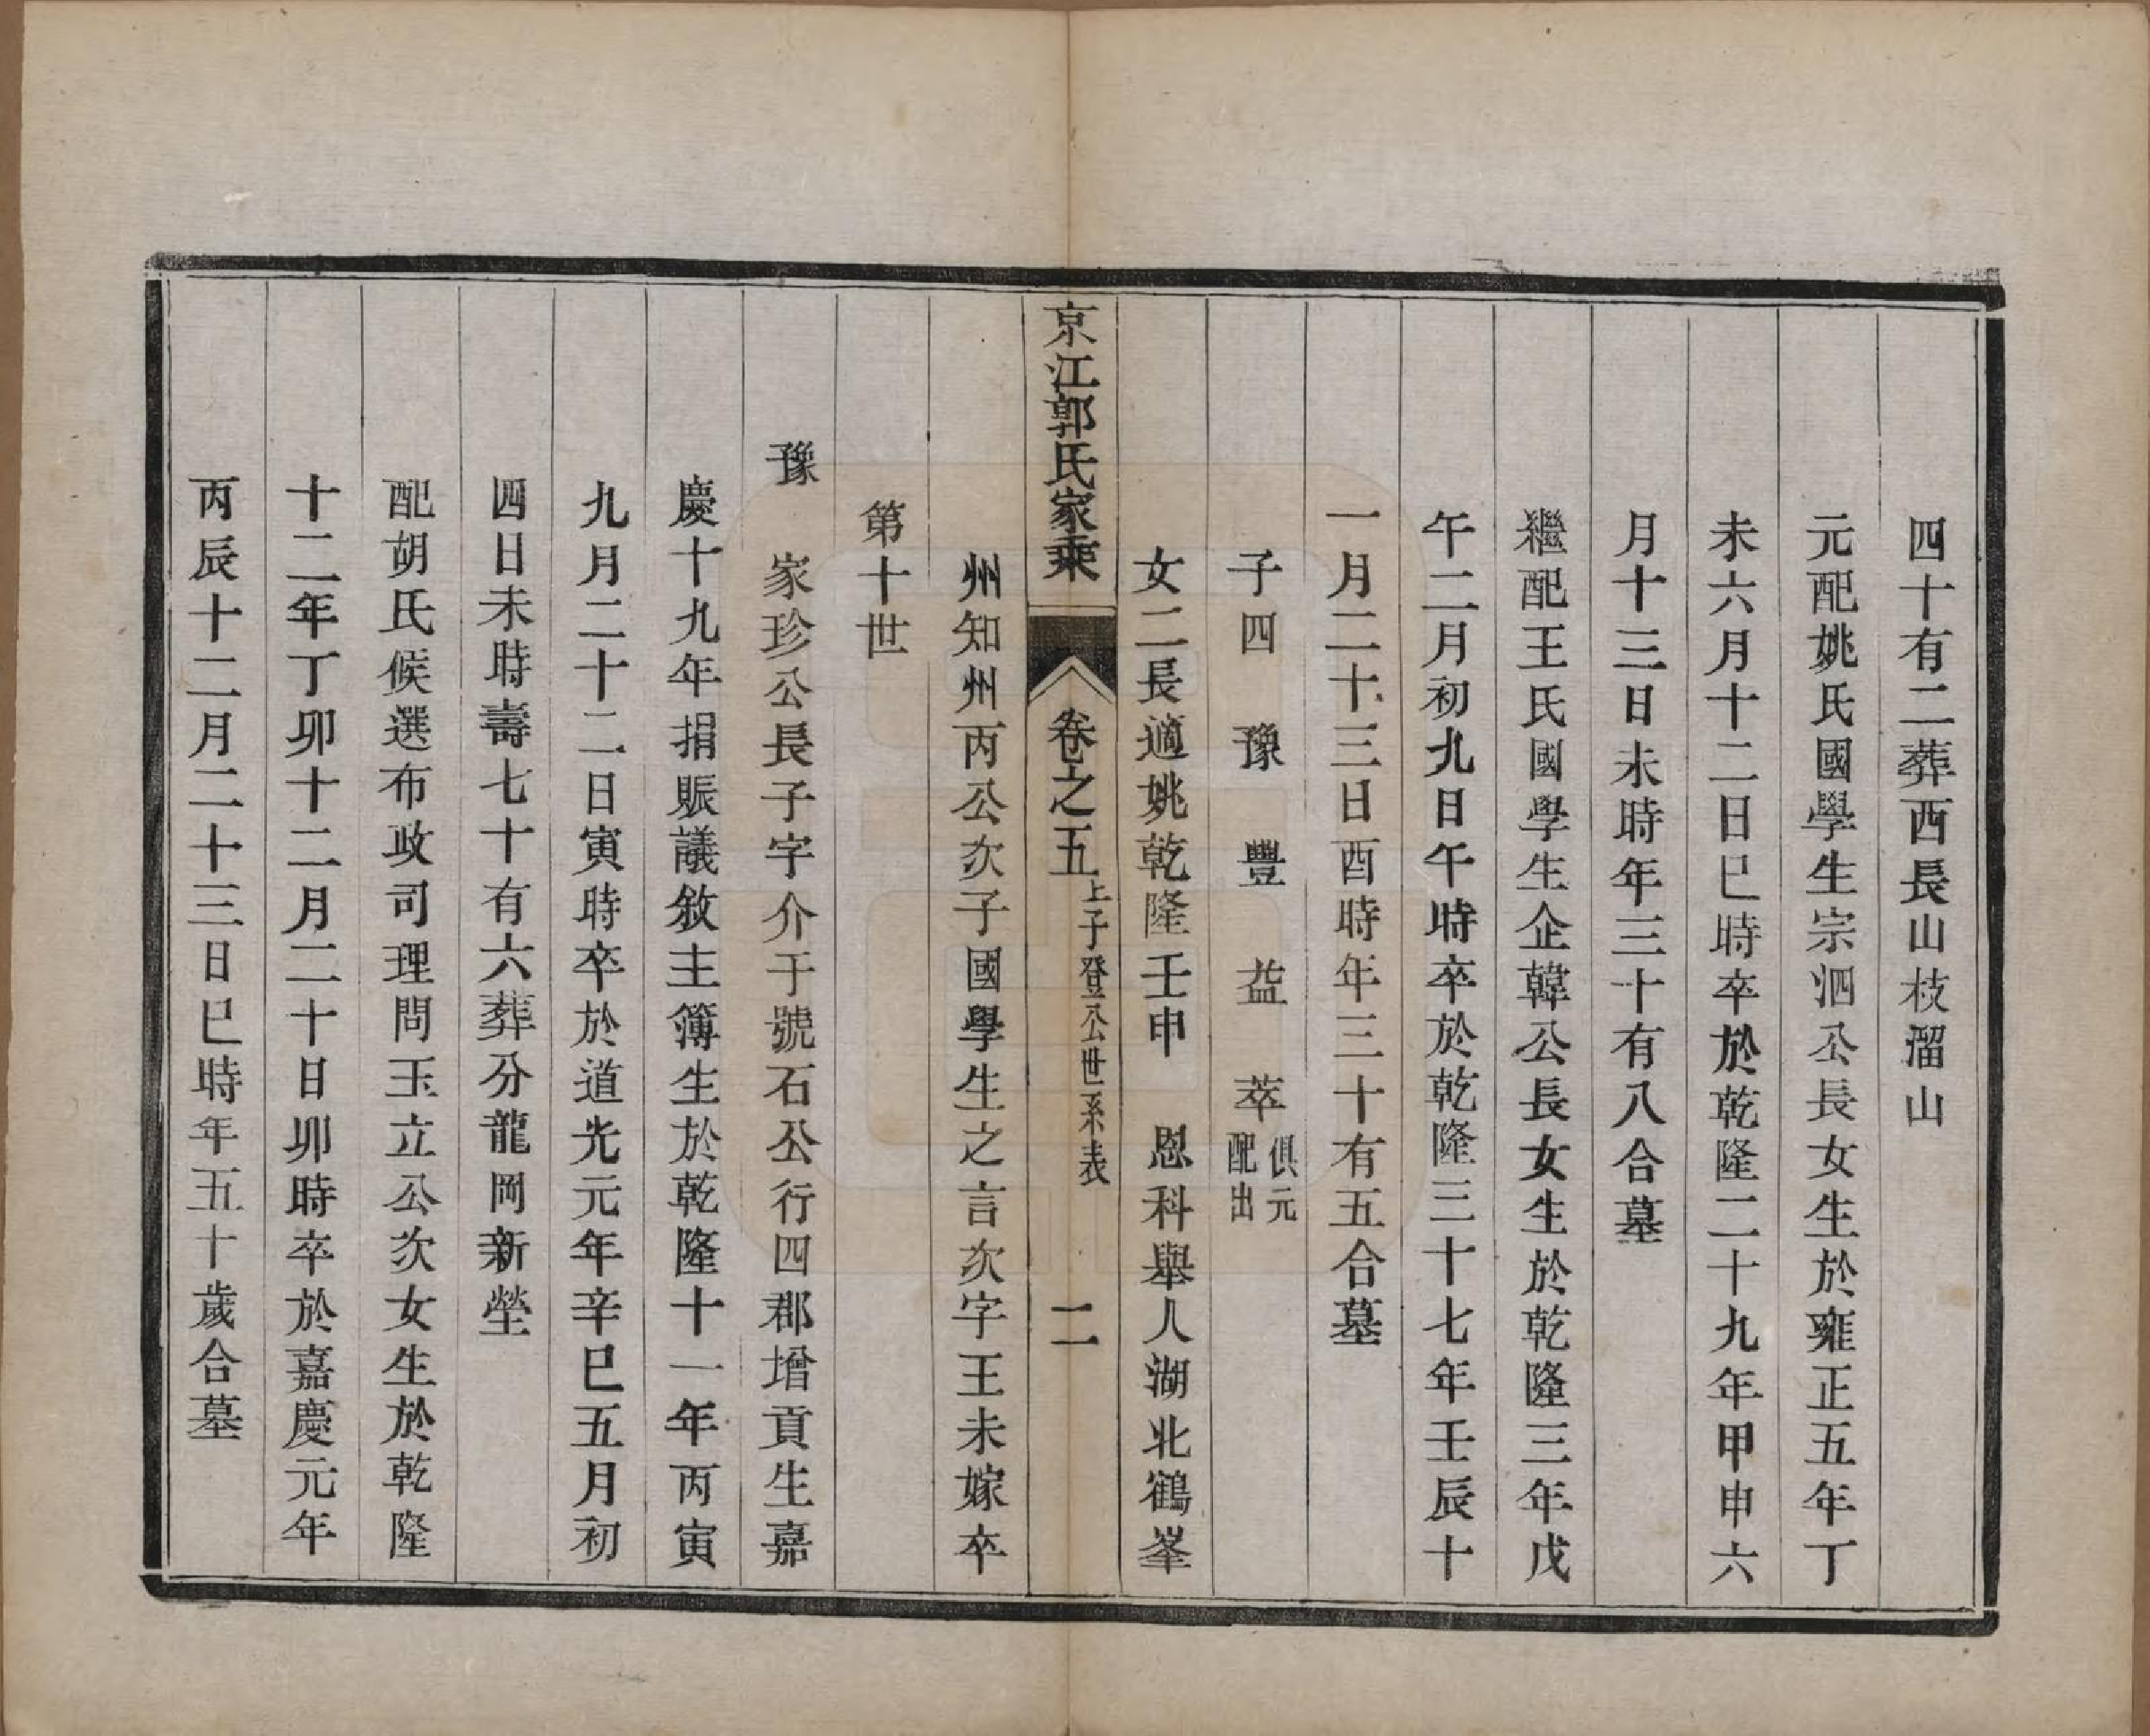 四十有二葬西長山枝溜山
元配姚氏國學生宗泗公長女生於雍正五年丁
未六月十二日巳時卒於乾隆二十九年甲申六
月十三日未時年三十有八合墓
繼配王氏國學生企韓公長女生於乾隆三年戊
午二月初九日午時卒於乾隆三十七年壬辰十
一月二十三日酉時年三十有五合墓
子四 豫 豐 益 萃 俱元配出
女二長適姚乾隆壬申 恩科舉人湖北鶴峯
京江郭氏家乘 卷之五 上子登公世系表 二
州知州丙公次子國學生之言次字王未嫁卒
第十世
豫 家珍公長子字介于號石公行四郡增貢生嘉
慶十九年捐賑議敘主簿生於乾隆十一年丙寅
九月二十二日寅時卒於道光元年辛巳五月初
四日未時壽七十有六葬分龍岡新塋
配胡氏候選布政司理問玉立公次女生於乾隆
十二年丁卯十二月二十日卯時卒於嘉慶元年
丙辰十二月二十三日巳時年五十歲合墓